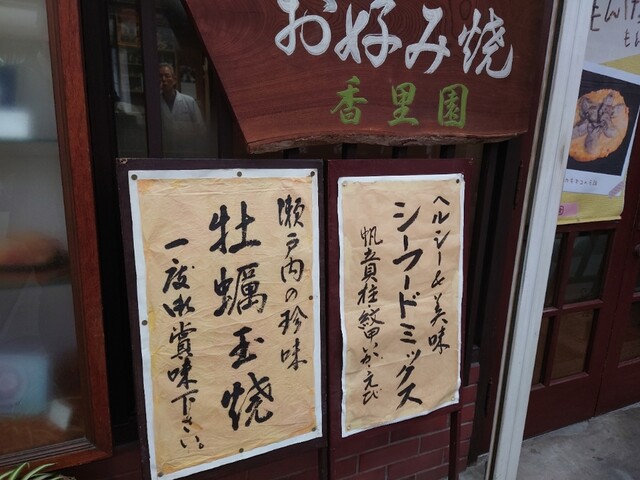 お好み焼
香里園
ヘルシー&美味
シーフードミックス
帆立貝柱・紋甲いか・えび
瀬戸内の珍味
牡蠣玉焼
一度御賞味下さい。